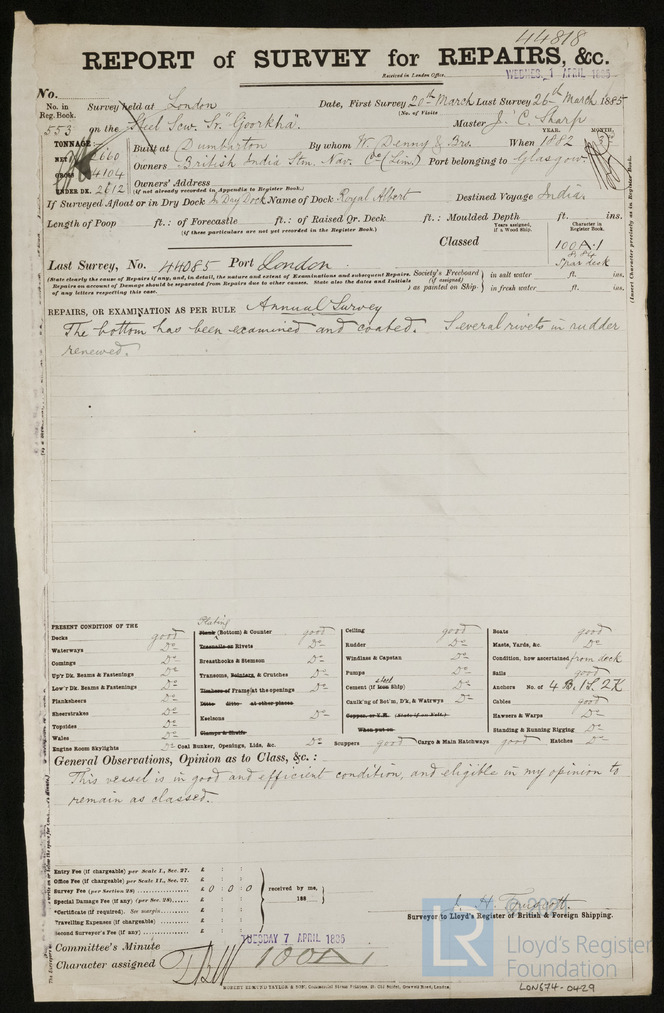 44818
REPORT of SURVEY for REPAIRS, &c.
Received in London Office, WEDNES. 1 APRIL 1885
No.
No. in Reg. Book. Survey held at London Date, First Survey 20th March Last Survey 26th March 1885
(No. of Visits
553 on the Steel Scw. Sr. "Goorkha" Master J. C. Sharp
TONNAGE: Built at Dumbarton By whom W. Denny & Bros. When 1882 YEAR. MONTH.
NET
GROSS 4104 Owners British India Stm. Nav. Co (Lim.) Port belonging to Glasgow
UNDER DK. 2612 Owners' Address
(if not already recorded in Appendix to Register Book.)
If Surveyed Afloat or in Dry Dock In Dry Dock Name of Dock Royal Albert Destined Voyage India
Length of Poop ft.: of Forecastle ft.: of Raised Qr. Deck ft.: Moulded Depth ft. ins.
(if these particulars are not yet recorded in the Register Book.)
Years assigned, if a Wood Ship. Character in Register Book.
Classed 100A.1
Spar deck
Last Survey, No. 44085 Port London
(State clearly the cause of Repairs if any; and, in detail, the nature and extent of Examinations and subsequent Repairs.
Repairs on account of Damage should be separated from Repairs due to other causes. State also the dates and Initials
of any letters respecting this case.
Society's Freeboard (if assigned) as painted on Ship
in salt water ft. ins.
in fresh water ft. ins.
(Insert Character precisely as in Register Book.
REPAIRS, OR EXAMINATION AS PER RULE Annual Survey
The bottom has been examined and coated. Several rivets in rudder
renewed.
PRESENT CONDITION OF THE
Decks good
Waterways Do
Comings Do
Up'r Dk. Beams & Fastenings Do
Low'r Dk. Beams & Fastenings Do
Planksheers Do
Sheerstrakes Do
Topsides Do
Wales Do
Engine Room Skylights Do
Plating
Plank (Bottom) & Counter good
Treenails or Rivets Do
Breasthooks & Stemson Do
Transoms, Pointers, & Crutches Do
Timbers of Frame at the openings Do
Ditto ditto at other places
Keelsons Do
Clamps & Shelfs
Coal Bunker, Openings, Lids, &c. Do
Ceiling good
Rudder Do
Windlass & Capstan Do
Pumps Do
steel
Cement (if Iron Ship) Do
Caulk'ng of Bot'm, D'k, & Watrwys Do
Copper, or Y.M. (State if on Felt.)
When put on
Scuppers good Cargo & Main Hatchways good Hatches Do
Boats good
Masts, Yards, &c. Do
Condition, how ascertained from deck
Sails good
Anchors No. of 4 B. 1 S. 2 K
Cables good
Hawsers & Warps Do
Standing & Running Rigging Do
General Observations, Opinion as to Class, &c.:
This vessel is in good and efficient condition, and eligible in my opinion to
remain as classed.
Entry Fee (if chargeable) per Scale I., Sec. 27. £ : :
Office Fee (if chargeable) per Scale II., Sec. 27. £ : :
Survey Fee (per Section 28) £ 0 : 0 : 0
Special Damage Fee (if any) (per Sec. 28) £ : :
*Certificate (if required). See margin £ : :
Travelling Expenses (if chargeable) £ : :
Second Surveyor's Fee (if any) £ : :
received by me,
188
Surveyor to Lloyd's Register of British & Foreign Shipping.
Committee's Minute TUESDAY 7 APRIL 1885
Character assigned 100A1
LR Lloyd's Register Foundation
LON674-0429